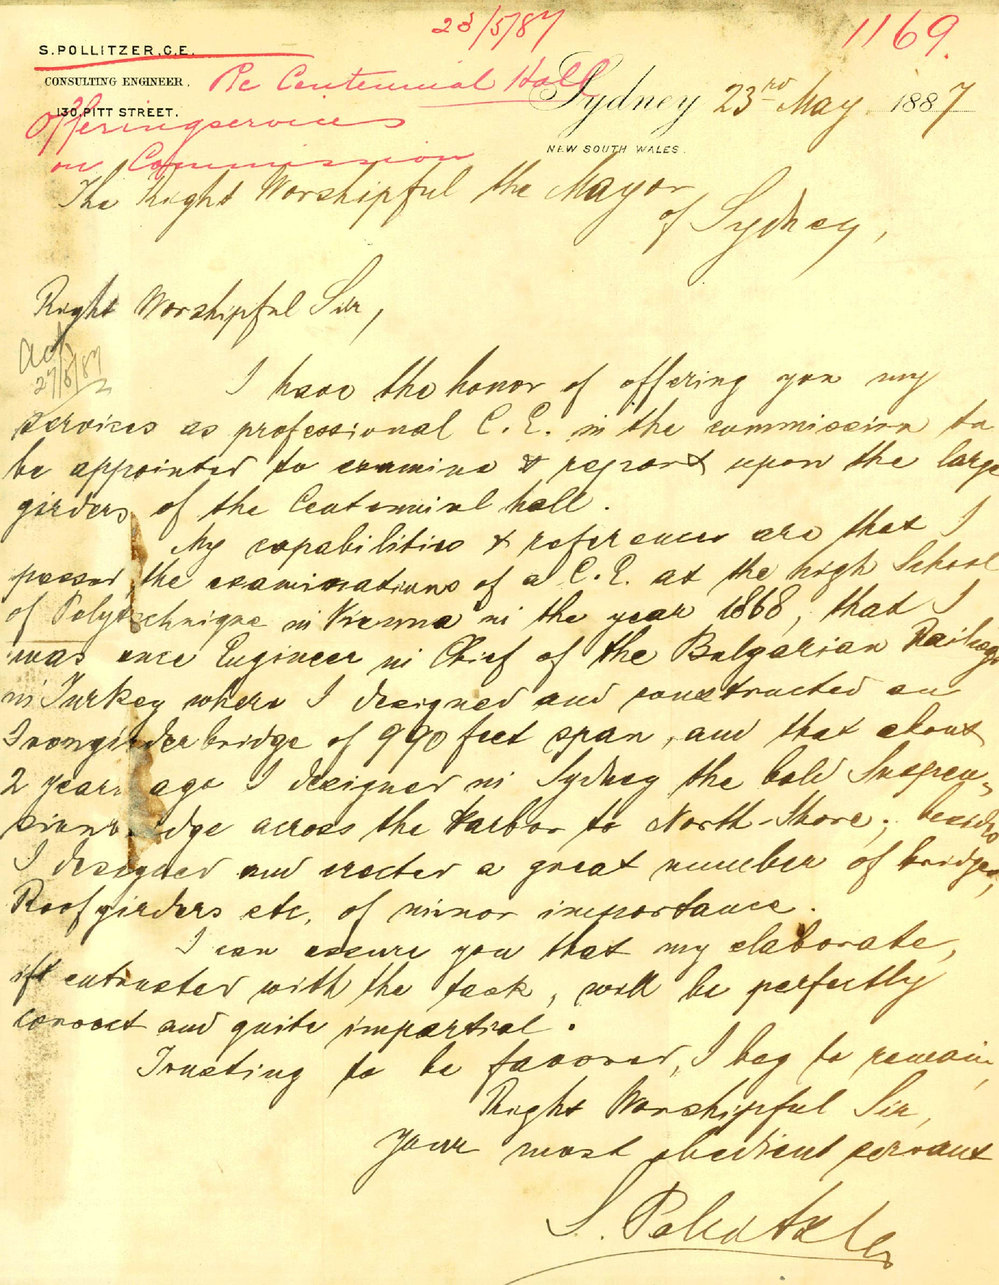 23/5/87
1169.
S. POLLITZER, C.E.
CONSULTING ENGINEER.
130, PITT STREET.
Re Centennial Hall
Offering services
on Commission
Sydney 23rd May 1887
NEW SOUTH WALES.
The Right Worshipful the Mayor
of Sydney,
Right Worshipful Sir,
ack
27/5/87
I have the honor of offering you my
services as professional C. E. in the commission to
be appointed to examine & report upon the large
girders of the Centennial hall.
My capabilities & references are that I
passed the examinations of a C. E. at the high School
of Polytechnique in Vienna in the year 1868, that I
was once Engineer in Chief of the Bulgarian Railway
in Turkey where I designed and constructed an
Irongirder bridge of 990 feet span, and that about
2 years ago I designed in Sydney the bold Suspen-
sionbridge across the Harbor to North-Shore; besides
I designed and erected a great number of bridges,
Roofgirders etc, of minor importance.
I can assure you that my elaborate,
if entrusted with the task, will be perfectly
correct and quite impartial.
Trusting to be favored, I beg to remain,
Right Worshipful Sir,
your most obedient servant
S. Pollitzer